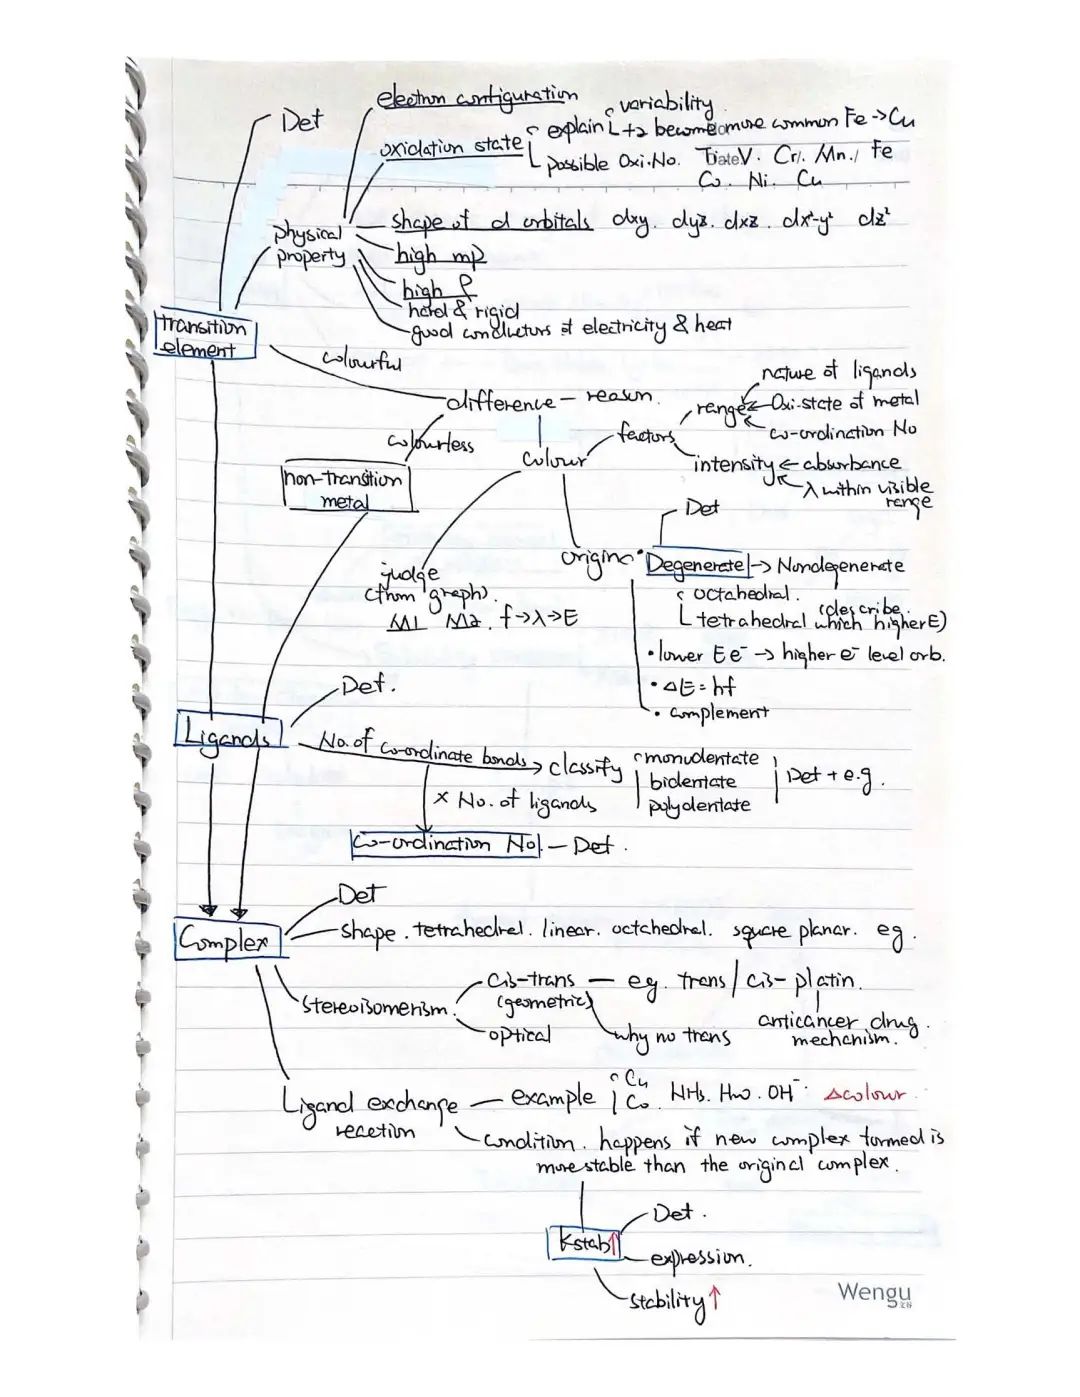 Def
electron configuration
oxidation state
explain
variability
+2 become more common Fe → Cu
possible Oxi. No. Ti V. Cr. Mn. Fe
Co. Ni. Cu
Date
physical
property
shape of d orbitals dxy. dyz. dxz. dx²-y² dz²
high mp
high ρ
hard & rigid
good conductors of electricity & heat
transition
element
colourful
difference – reason.
colourless
non-transition
metal
colour
factors
range
nature of ligands
Oxi-state of metal
co-ordination No
intensity ← absorbance
λ within visible
range
judge
(from graph).
M1 M2. f→λ→E
origin
Def
• Degenerate → Nondegenerate
octahedral.
tetrahedral (describe.
which higher E)
• lower E e⁻ → higher e⁻ level orb.
• ΔE = hf
• complement
Ligands
Def.
No. of co-ordinate bonds → classify
monodentate
bidentate
polydentate
Def + e.g.
× No. of ligands
Co-ordination No – Def.
Complex
Def
shape. tetrahedral. linear. octahedral. square planar. eg.
Stereoisomerism.
cis-trans — eg. trans / cis- platin.
(geometric)
optical
why no trans
anticancer drug.
mechanism.
Ligand exchange
reaction
— example
Cu
Co.
NH₃. H₂O. OH⁻ Δcolour.
condition. happens if new complex formed is
more stable than the original complex.
Kstab↑
Def.
expression.
stability↑
Wengu